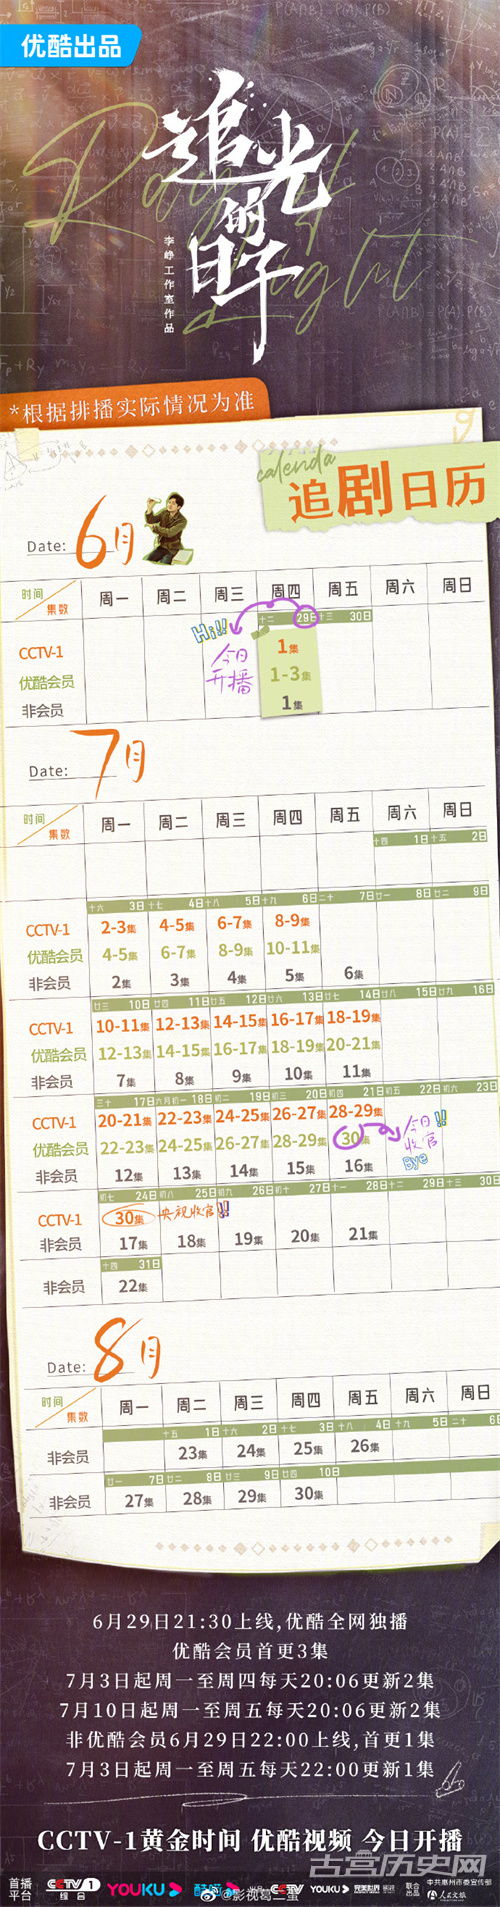 优酷出品
追光的日子
Ray of Light
李峥工作室作品
*根据排播实际情况为准
calenda
追剧日历
Date: 6月
时间 集数 周一 周二 周三 周四 周五 周六 周日
十二 29日 十三 30日
Hi!! 今日开播
CCTV-1 1集
优酷会员 1-3集
非会员 1集
Date: 7月
时间 集数 周一 周二 周三 周四 周五 周六 周日
十四 1日 十五 2日
十六 3日 十七 4日 十八 5日 十九 6日 二十 7日 廿一 8日 廿二 9日
CCTV-1 2-3集 4-5集 6-7集 8-9集
优酷会员 4-5集 6-7集 8-9集 10-11集
非会员 2集 3集 4集 5集 6集
廿三 10日 廿四 11日 廿五 12日 廿六 13日 廿七 14日 廿八 15日 廿九 16日
CCTV-1 10-11集 12-13集 14-15集 16-17集 18-19集
优酷会员 12-13集 14-15集 16-17集 18-19集 20-21集
非会员 7集 8集 9集 10集 11集
三十 17日 六月初一 18日 初二 19日 初三 20日 初四 21日 初五 22日 初六 23日
CCTV-1 20-21集 22-23集 24-25集 26-27集 28-29集
优酷会员 22-23集 24-25集 26-27集 28-29集 30集
今日收官!! Bye
非会员 12集 13集 14集 15集 16集
初七 24日 初八 25日 初九 26日 初十 27日 十一 28日 十二 29日 十三 30日
CCTV-1 30集 央视收官!!
非会员 17集 18集 19集 20集 21集
十四 31日
非会员 22集
Date: 8月
时间 集数 周一 周二 周三 周四 周五 周六 周日
十五 1日 十六 2日 十七 3日 十八 4日 十九 5日 二十 6日
非会员 23集 24集 25集 26集
廿一 7日 廿二 8日 廿三 9日 廿四 10日
非会员 27集 28集 29集 30集
6月29日21:30上线,优酷全网独播
优酷会员首更3集
7月3日起周一至周四每天20:06更新2集
7月10日起周一至周五每天20:06更新2集
非优酷会员6月29日22:00上线,首更1集
7月3日起周一至周五每天22:00更新1集
CCTV-1黄金时间 优酷视频 今日开播
古营历史网
首播平台 CCTV 1 综合 YOUKU 酷 @影视葛二蛋 出品 CCTV 1 YOUKU 完美世界 联合出品 中共惠州市委宣传部 人民文娱